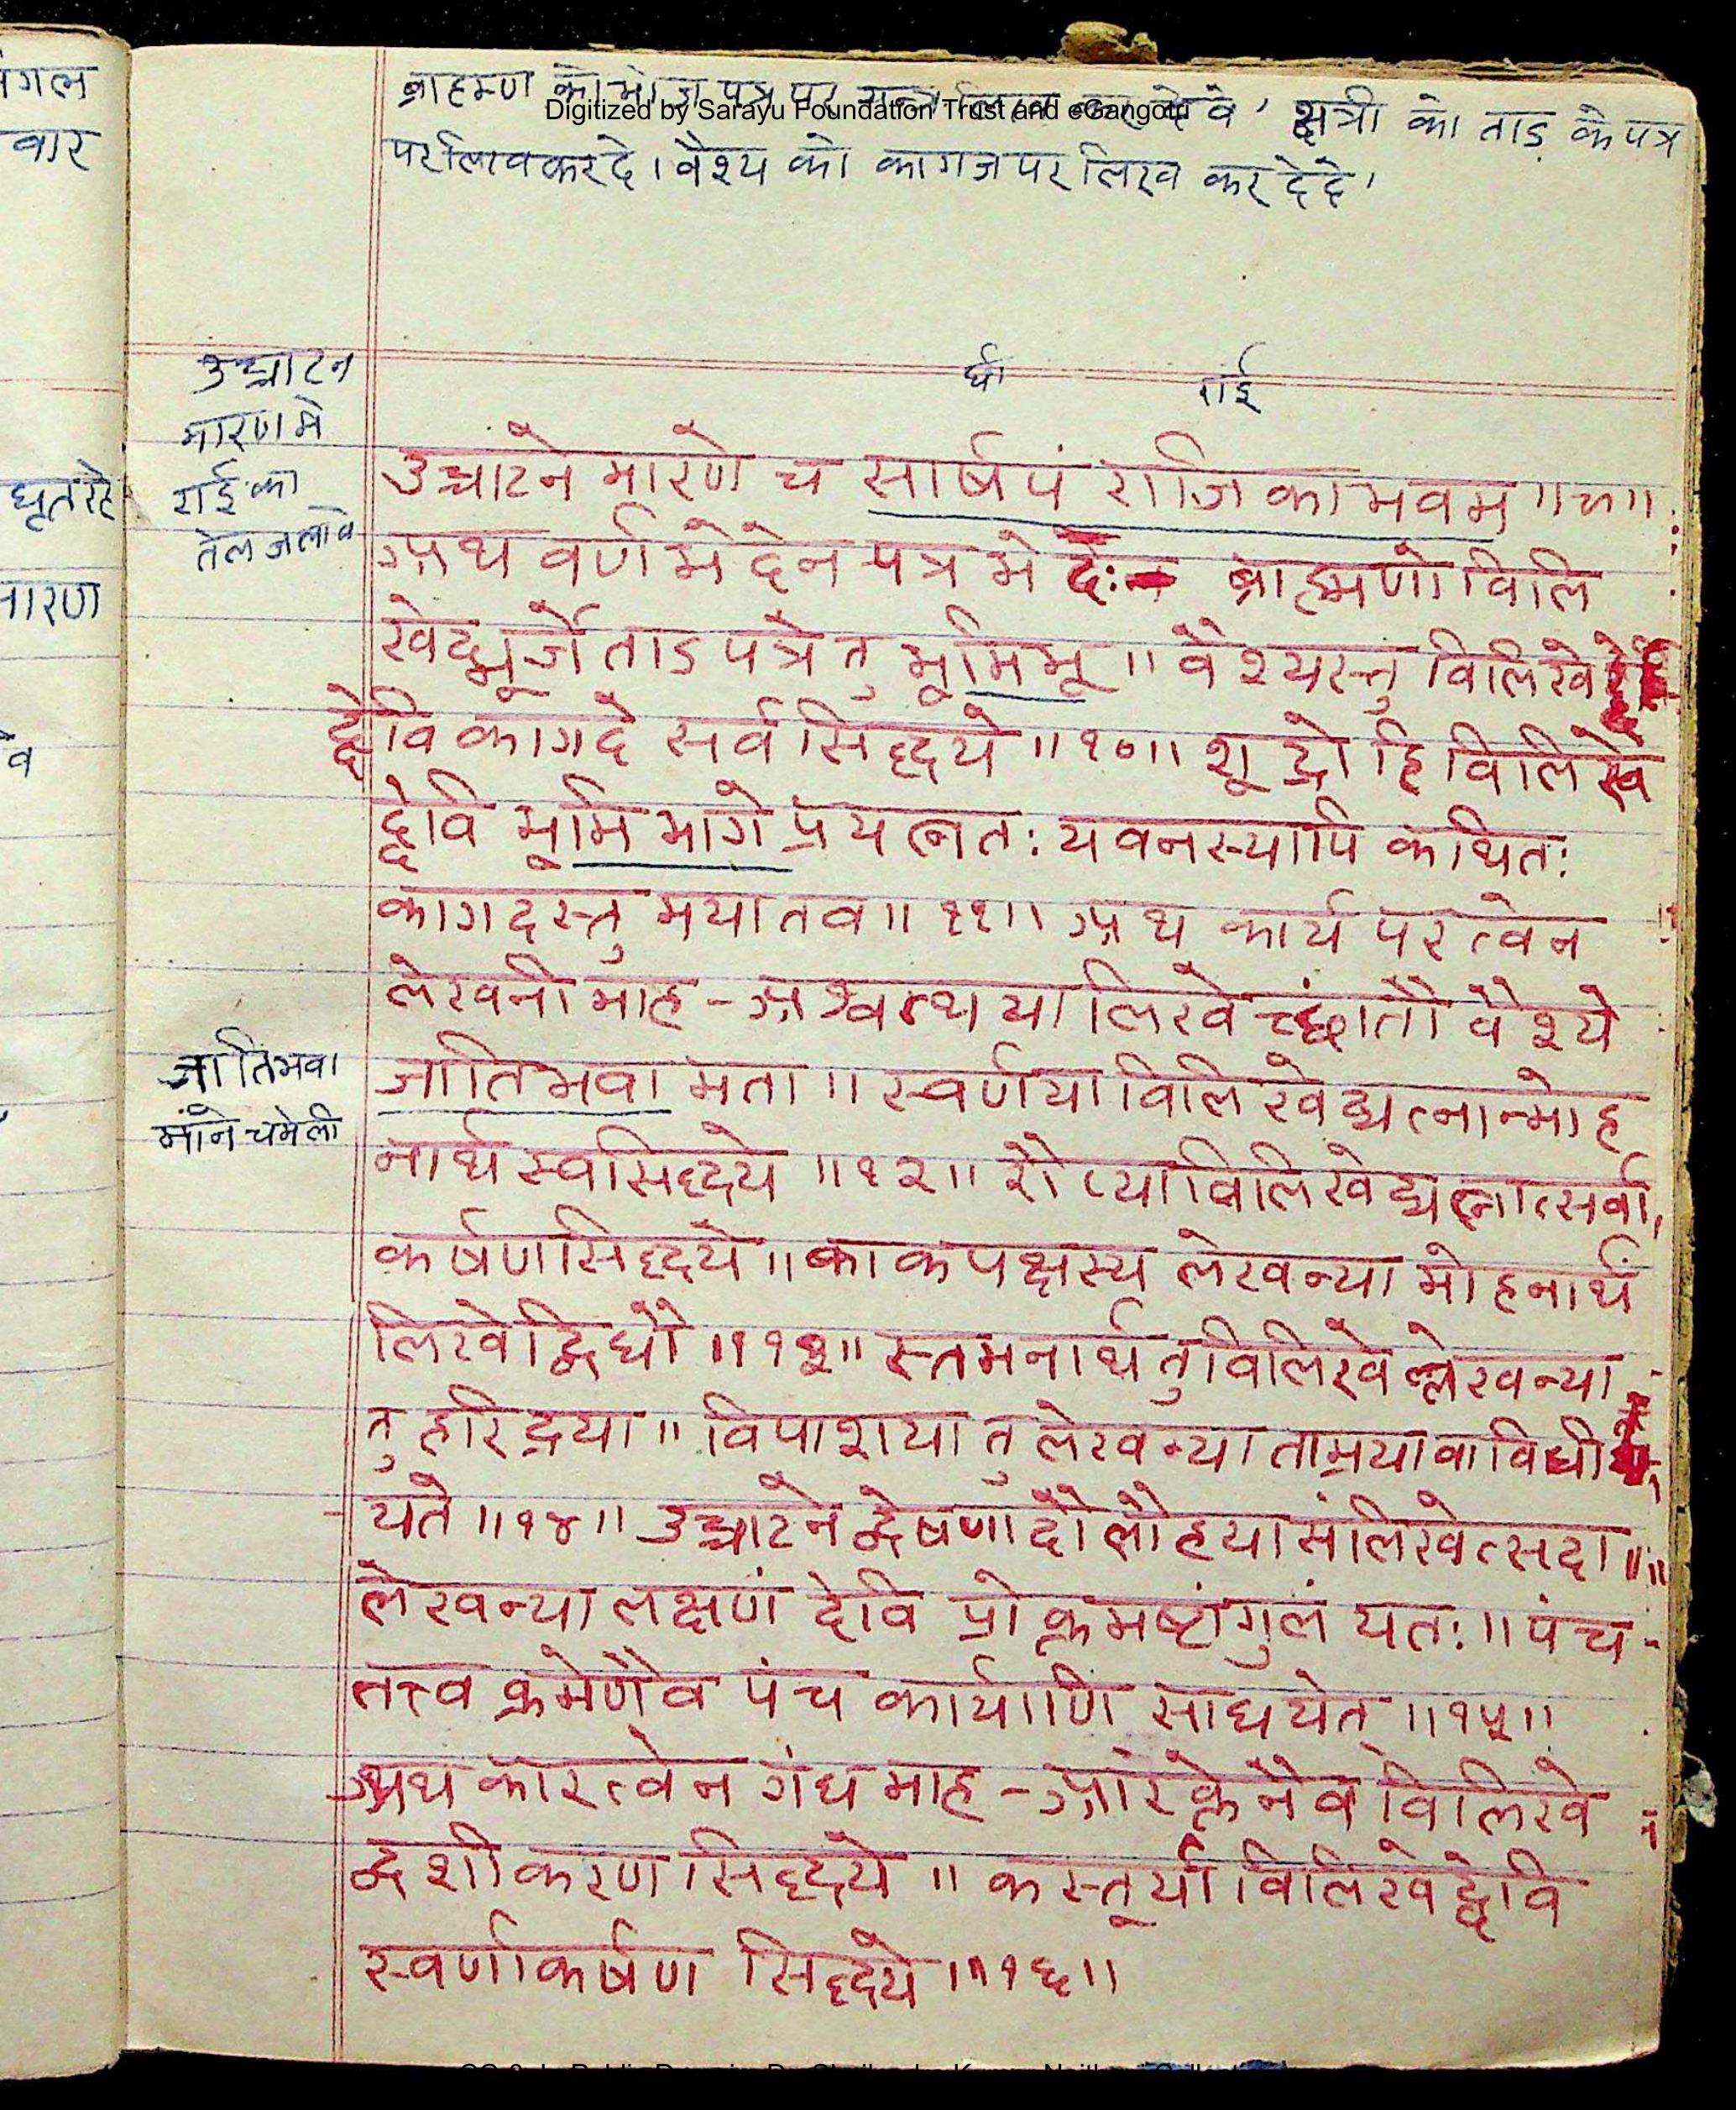 ब्राह्मण को भोज पत्र पर देवे' क्षत्री को ताड़ के पत्र
Digitized by Sarayu Foundation Trust and eGangotri
पर लिख कर दे। वैश्य को कागज पर लिख कर दे दे'
र्घा राई
उच्चाटन
मारण मे
राई का
तेल जलावे
उच्चाटने मारणे च सार्षपं राजिकाभवम ॥९॥
अथ वर्ण मेदेन पत्र मे दः- ब्राह्मणो विलि
खेद्भूर्जे ताड पत्रे तु भूमिभू ॥ वैश्यस्तु विलिखे
द्देवि कागदे सर्व सिद्धये ॥१०॥ शूद्रो हि विलिखे
द्देवि भूमि भागे प्रयत्नतः यवनस्यापि कथितः
कागदस्तु मया तव ॥ ११॥ अथ कार्य परत्वेन
लेखनी माह - अश्वत्थया लिखेच्छांतौ वैश्ये
जातिभवा
माने चमेली
जातिभवा मता ॥ स्वर्णया विलिखेद्यत्नान्मोह
नार्थ स्वसिद्धये ॥१२॥ रौप्या विलिखेद्यत्नात्सर्वा,
कर्षण सिद्धये ॥ काक पक्षस्य लेखन्या मोहनार्थं
लिखेद्विधौ ॥१३॥ स्तमनार्थ तु विलिखेल्लेखन्या
तु हरिद्रया ॥ विपाशया तु लेखन्या ताम्रया वा विधी
यते ॥१४॥ उच्चाटने द्वेषणादौ लौहया संलिखेत्सदा ॥
लेखन्या लक्षणं देवि प्रोक्तमष्टांगुलं यतः ॥ पंच-
तत्त्व क्रमेणैव पंच कार्याणि साधयेत् ॥१५॥
अथ कारत्वेन गंध माह - आरक्तेनैव विलिखे
द्वशीकरण सिद्धये ॥ कस्तूर्या विलिखेद्देवि
स्वर्णाकर्षण सिद्धये ॥१६॥
गल
वार
घृत
मारण
व